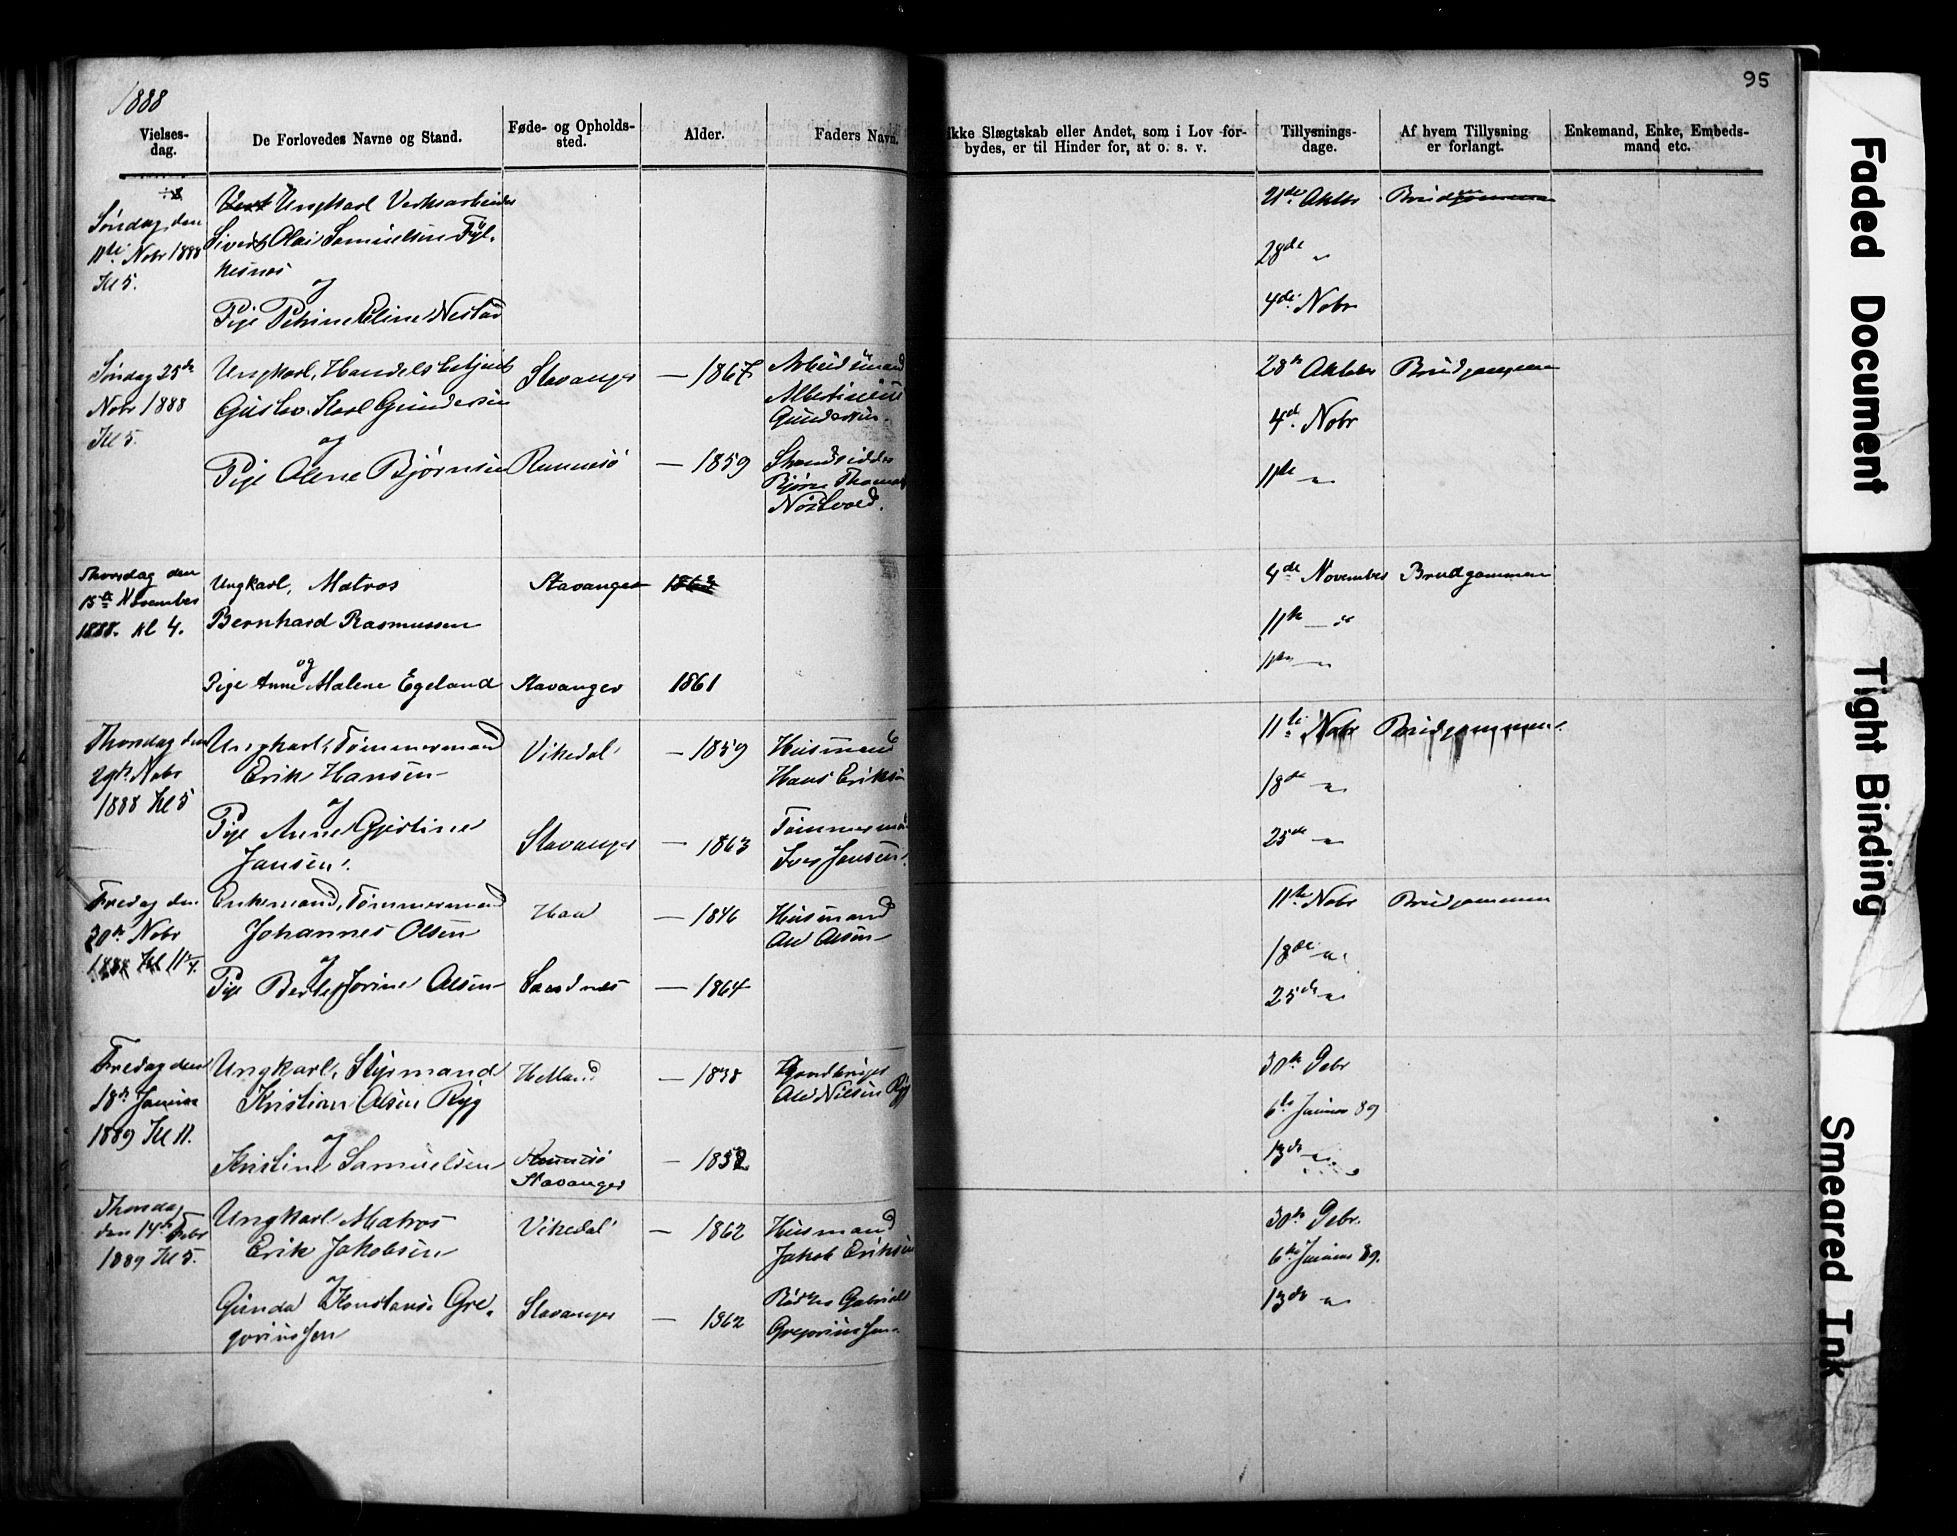 1888
95
Vielses-
dag.
De Forlovedes Navne og Stand.
Føde- og Opholds-
sted.
Alder.
Faders Navn.
ikke Slægtskab eller Andet, som i Lov for-
bydes, er til Hinder for, at o. s. v.
Tillysnings-
dage.
Af hvem Tillysning
er forlangt.
Enkemand, Enke, Embeds-
mand etc.
Søndag den
11te Nobr 1888
Kl 5.
Ungkarl Verksarbeider
Sivert Olai Samuelsen
og
Pige Petrine Eline Nestad
21de Oktbr
28de "
4de Nobr
Brudgommen
Søndag 25de
Nobr 1888
Kl 5.
Ungkarl, Handelsbetjent
Gustav Karl Gundersen
og
Pige Olene Bjørnsen
Stavanger
Rennesø
— 1867
— 1859
Arbeidsmand
Gundersen
Strandsidder
Bjørn
28de Oktober
4de Nobr
11te "
Brudgommen
Thorsdag den
15de November
1888. Kl 4.
Ungkarl, Matros
Bernhard Rasmussen
og
Pige Anne Malene Egeland
Stavanger
Stavanger
1861
4de November
11te — "
Brudgommen
Thorsdag den
29de Nobr
1888 Kl 5
Ungkarl, Tømmermand
Erik Hansen
og
Pige Anne Gjertine
Jansen.
Vikedal
Stavanger
— 1859
— 1863
Husmand
Hans Eriksen
Jansen.
11te Nobr
18de "
25de "
Brudgommen
Fredag den
30te Nobr
1888 Kl 11
Enkemand, Tømmermand
Johannes Olsen
og
Pige Berte Jorine Olsen
Haa
Sandnes
— 1846
— 1864
Husmand
Ole Olsen
11te Nobr
18de "
25de "
Brudgommen
Fredag den
18de Januar
1889 Kl 11.
Ungkarl, Styrmand
Kristian Olsen Ryg
og
Kristine Samuelsen
Hetland
Rennesø
Stavanger
— 1838
— 1852
Gaardbruger
Ole Nilsen Ryg
30te Debr
6te Januar 89
13de "
Thorsdag
den 14de Febr
1889 Kl 5.
Ungkarl, Matros
Erik Jakobsen
og
Gunda Konstanse Gre-
goriussen
Vikedal
Stavanger
— 1862
— 1862
Husmand
Jakob Eriksen
Gabriel
Gregoriussen
30te Debr.
6te Januar 89.
13de "
Faded Document
Tight Binding
Smeared Ink